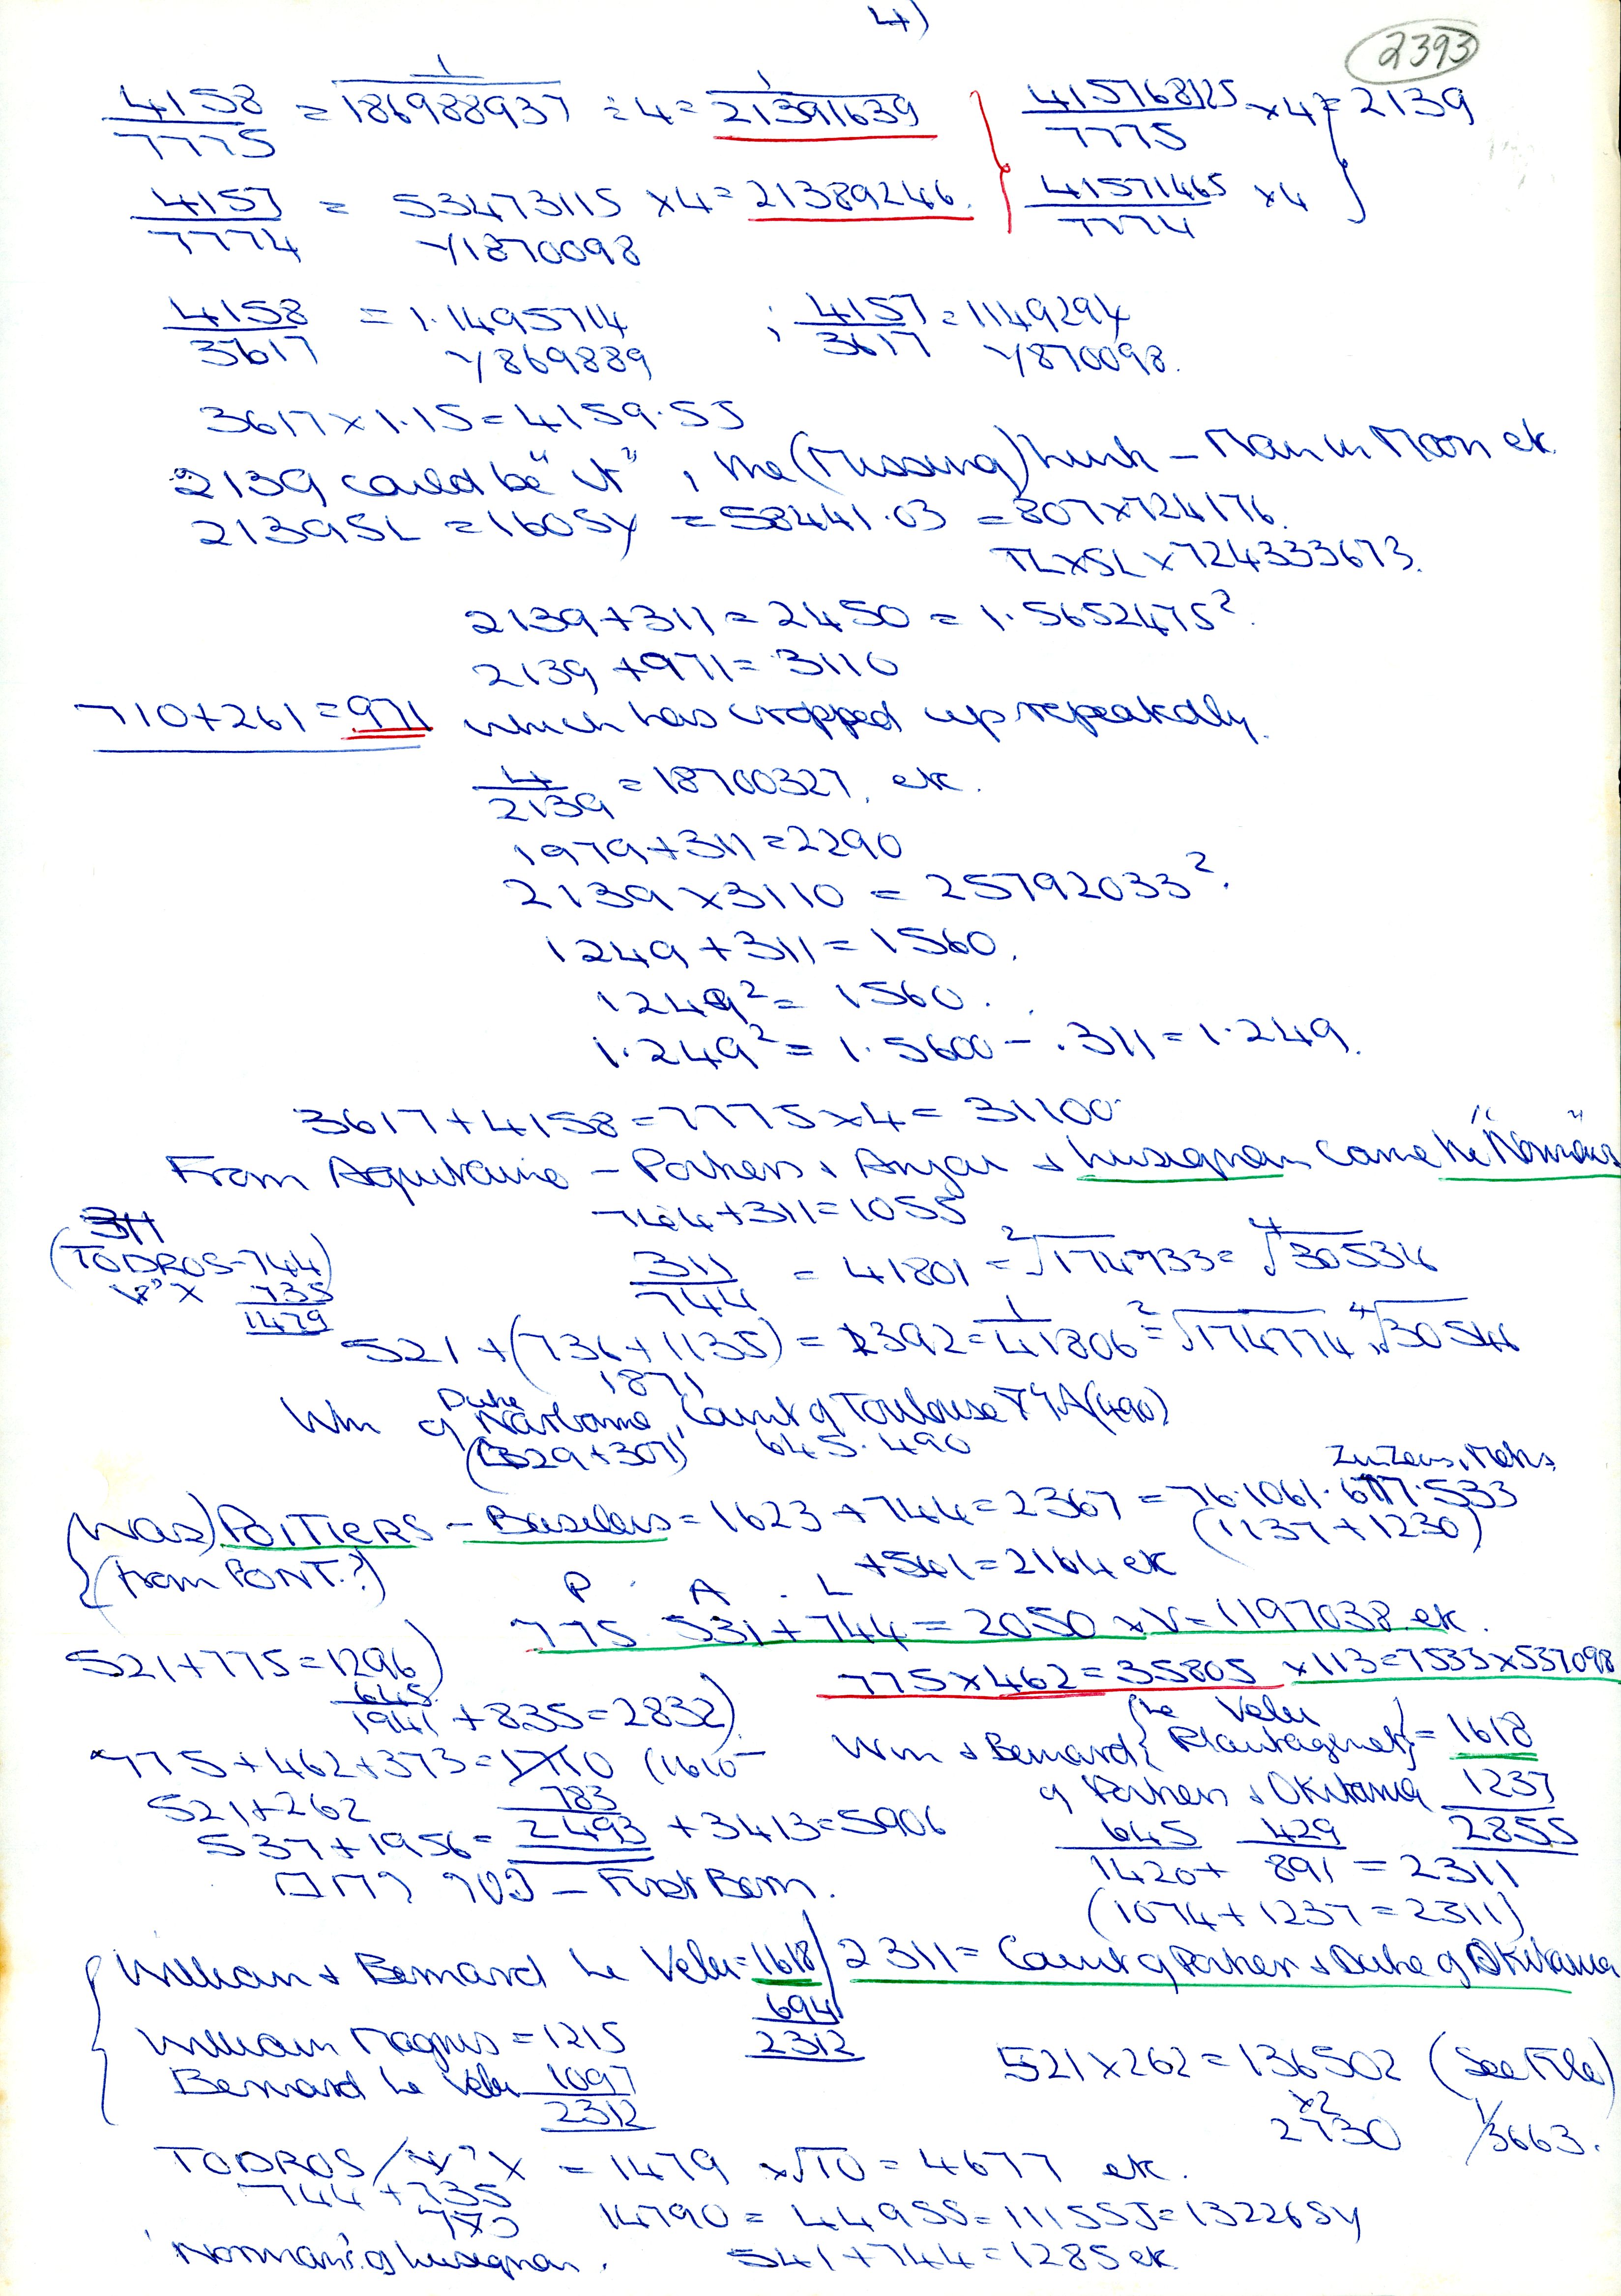 4)
2393
4158/7775 = 1/186988937 ÷ 4 = 1/21391639 } 415768125/7775 × 4 } = 2139
4157/7774 = 53473115 × 4 = 21389246. } 41571465/7774 × 4 }
Y1870098
4158/3617 = 1.1495714 ; 4157/3617 = 1149294
Y869889 Y870098.
3617 × 1.15 = 4159.55
2139 could be "it", the (Missing) Link – Man in Moon etc.
2139SL = 1605Y = 58441.03 = 807 × 724176.
TL × SL × 724333673.
2139 + 311 = 2450 = 1.5652475².
2139 + 971 = 3110
710 + 261 = 971 which has cropped up repeatedly.
4/2139 = 18700327, etc.
1979 + 311 = 2290
2139 × 3110 = 25792033².
1249 + 311 = 1560.
1249² = 1560.
1.249² = 1.5600 – .311 = 1.249.
3617 + 4158 = 7775 × 4 = 31100
From Aquitaine – Poitiers & Anjou & Lusignan came the "Normans"
744 + 311 = 1055
311
(TODROS – 744)
735
1479
311/744 = 41801 = ²√174733 = ⁴√30534
521 + (736 + 1135) = 2392 = 1/41806 = ²√174774 ⁴√30546
1871
Wm Duke of Narbonne, Count of Toulouse (490)
(1329 + 307) 645.490
(Was) POITIERS – Basileus = 1623 + 744 = 2367 = 76.1061.677.533
(1137 + 1230)
(from PONT.?)
+ 541 = 2164 etc
P . A . L
775 531 + 744 = 2050 × V = 1197038 etc.
521 + 775 = 1296)
645
1941 + 835 = 2832)
775 × 462 = 35805 × 113 = 7533 × 537098
775 + 462 + 373 = 1710 (1610
Wm & Bernard { Le Velu Plantagenet } = 1618
521 + 262 783
of Poitiers & Okitania 1237
2855
537 + 1956 = 2493 + 3413 = 5906
645 429
1420 + 891 = 2311
– First Born.
(1074 + 1237 = 2311)
William & Bernard Le Velu = 1618 / 2311 = Count of Poitiers & Duke of Okitania
694
2312
William Magnus = 1215
Bernard Le Velu 1097
2312
521 × 262 = 136502 (See File)
×2
2730 1/3663.
TODROS = 1479 × √10 = 4677 etc.
744 + 735
14790 = 4495S = 11155J = 13226SY
'Norman's of Lusignan. 541 + 744 = 1285 etc.